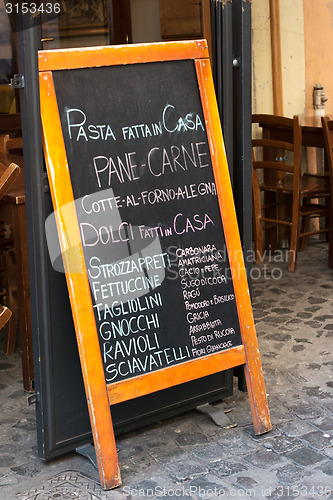 3451063
Pasta fatta in Casa
PANE-CARNE
Cotte-al-forno-a legna
Dolci fatti in Casa
Strozzapreti
Fettucine
Tagliolini
Gnocchi
Ravioli
Sciavatelli
Carbonara
Cacio e pepe
Sugo di coda
Ragù
Pomodoro e basilico
Gricia
Arrabbiata
Pesto di rucola
Fiori